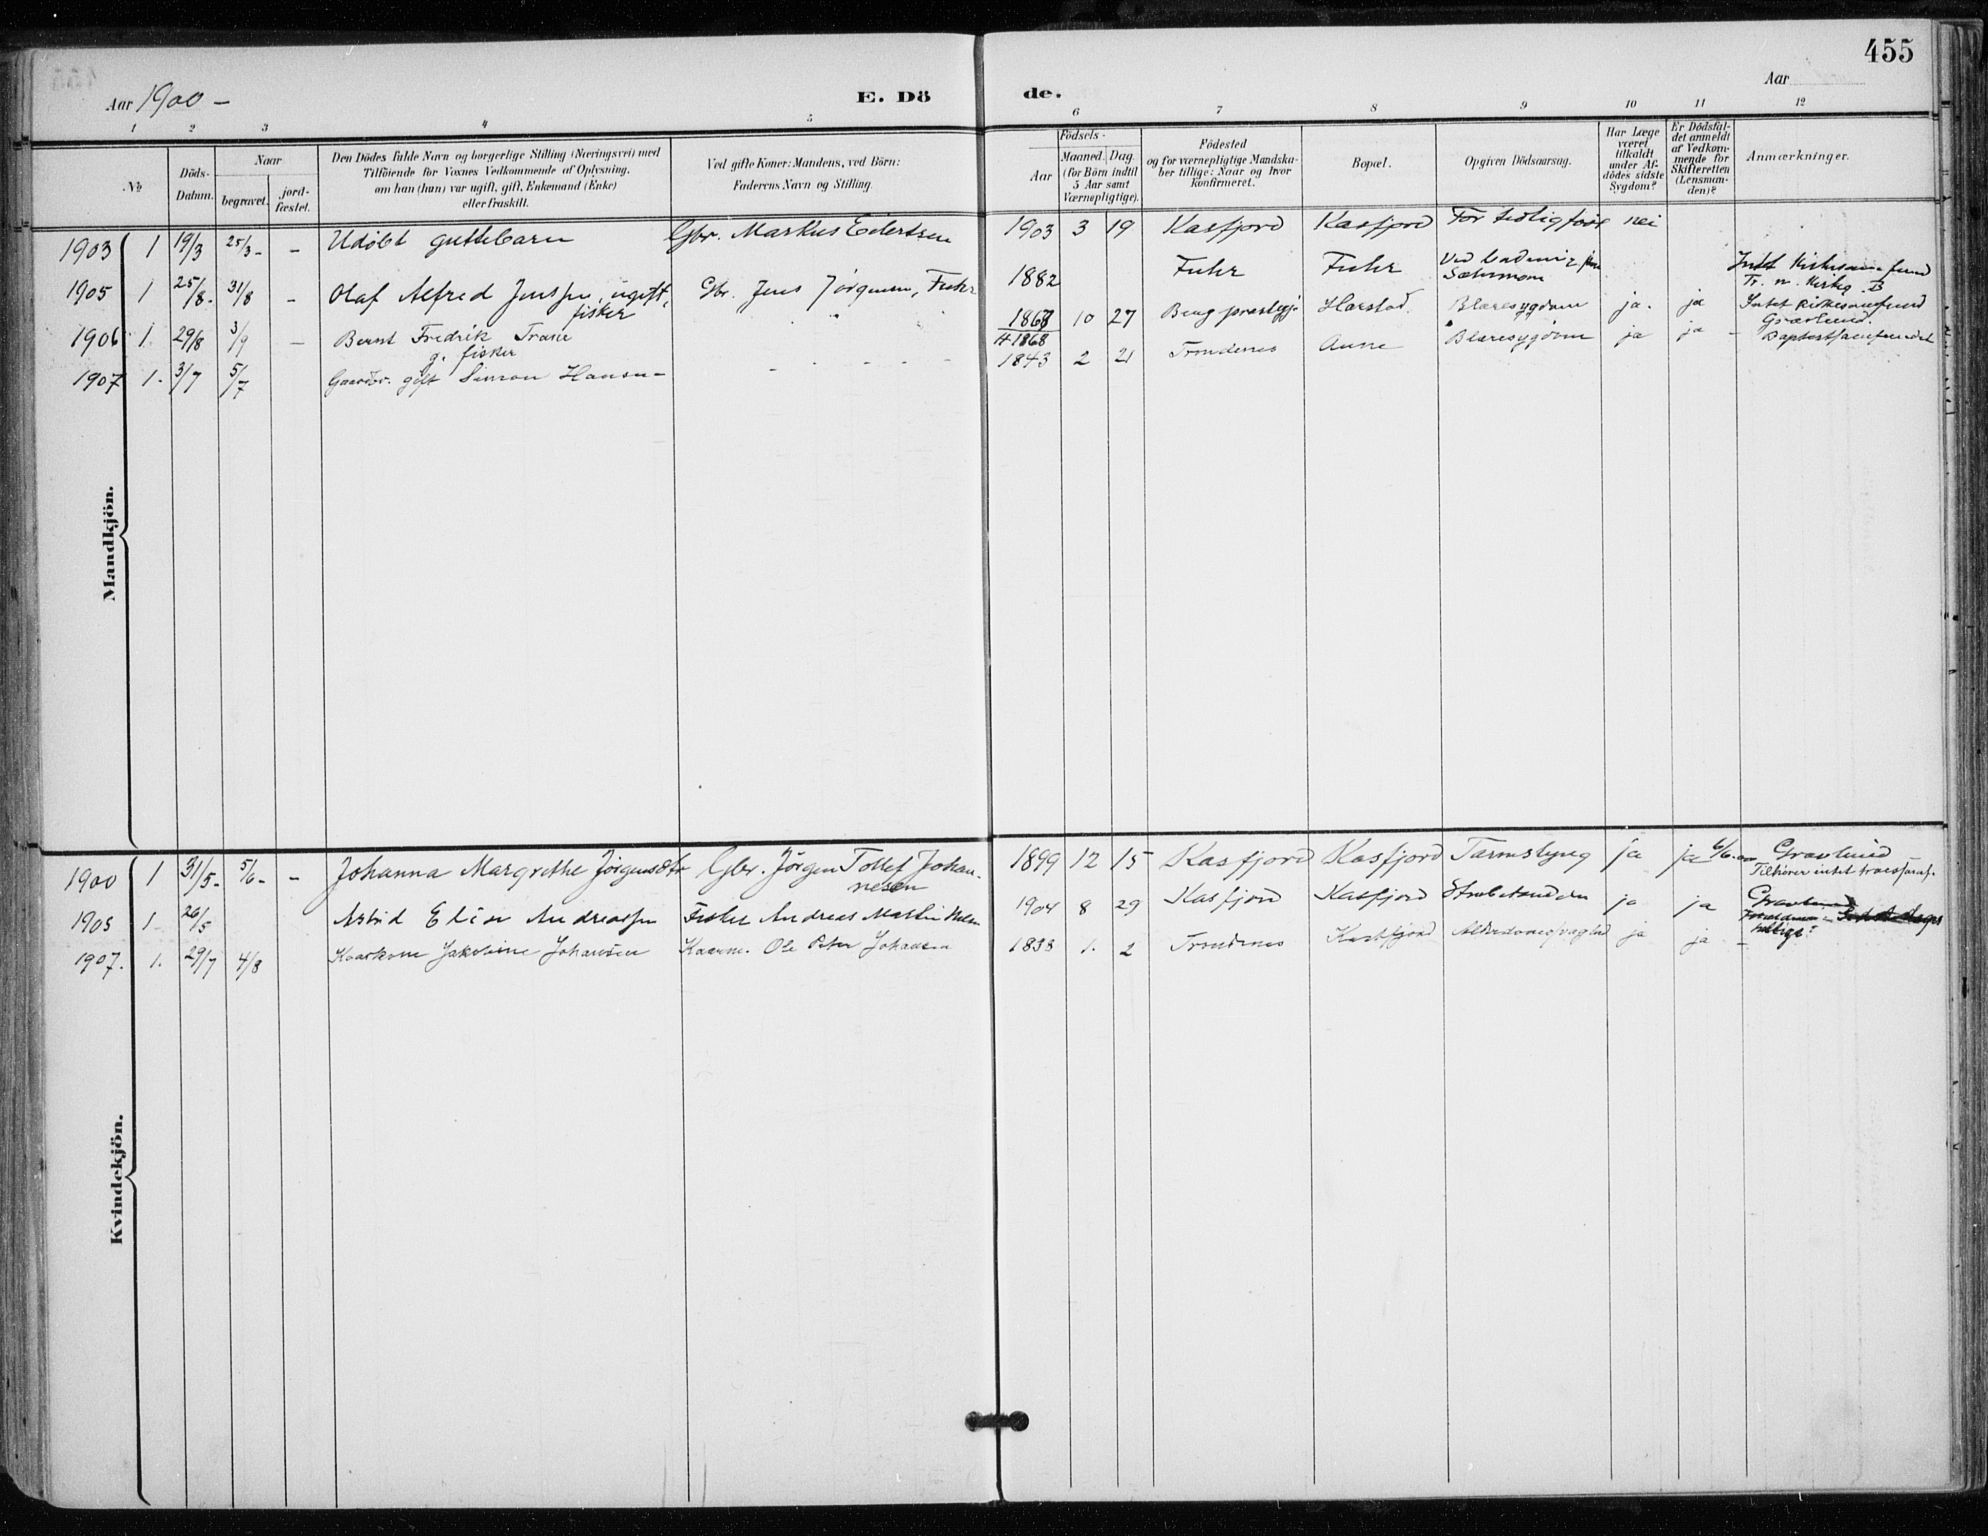 455
Aar 1900 –
E. Dö
de.
Aar
1 2 3 4 5 6 7 8 9 10 11 12
No
Döds-Datum.
Naar
begravet.
jord-fæstet.
Den Dödes fulde Navn og borgerlige Stilling (Næringsvei) med
Tilföiende for Voxnes Vedkommende af Oplysning,
om han (hun) var ugift, gift, Enkemand (Enke)
eller fraskilt.
Ved gifte Koner: Mandens, ved Börn:
Faderens Navn og Stilling.
Födsels-
Aar
Maaned. Dag.
(for Börn indtil
5 Aar samt
Værnepligtige).
Födested
og for værnepligtige Mandska-
ber tillige: Naar og hvor
konfirmeret.
Bopæl.
Opgiven Dödsaarsag.
Har Læge
været
tilkaldt
under Af-
dödes sidste
Sygdom?
Er Dödsfal-
det anmeldt
af Vedkom-
mende for
Skifteretten
(Lensman-
den)?
Anmærkninger.
Mandkjön.
1903 1 19/3 25/3 – – Udøbt guttebarn Gbr. Markus Edertsen 1903 3 19 Kasfjord Kasfjord For tidlig født nei
1905 1 25/8 – 31/8 – Olaf Alfred Jenssen, ugift, Gbr. Jens Jörgensen, Fuhr 1882 Fuhr Fuhr Ved
fisker
1906 1. 29/8 3/9 – Bernt Fredrik Trane 1868 10 27 Harstad. Blæresygdom ja. ja Intet kirkesamfund
g. fisker
Gravlund.
# 1868
1907 1. 3/7 5/7 Gaardbr. gift Simon Hansen – 1843 2 21 Trondenes Aune Blæresygdom ja ja – Baptistsamfundet
Kvindekjön.
1900 1 31/5 – 5/6 – – Johanna Margrethe Jørgensdtr Gbr. Jörgen Tollef Johan-
nesen
1899 12 15 Kasfjord Kasfjord Tarmslyng ja ja 6/6.00 Gravlund
Tilhører intet troessamf.
1905 1 – 26/5 Astrid Elise Andreassen Fisker Andreas Martin 1904 8 29 Kasfjord Kasfjord Strubehoste ja ja
1907. 1. 29/7 4/8 Kaarkone Jakobine Johansen Kaarm. Ole Peter Johansen 1838 1. 2 Trondenes Kasfjord Alderdomssvaghed ja ja –